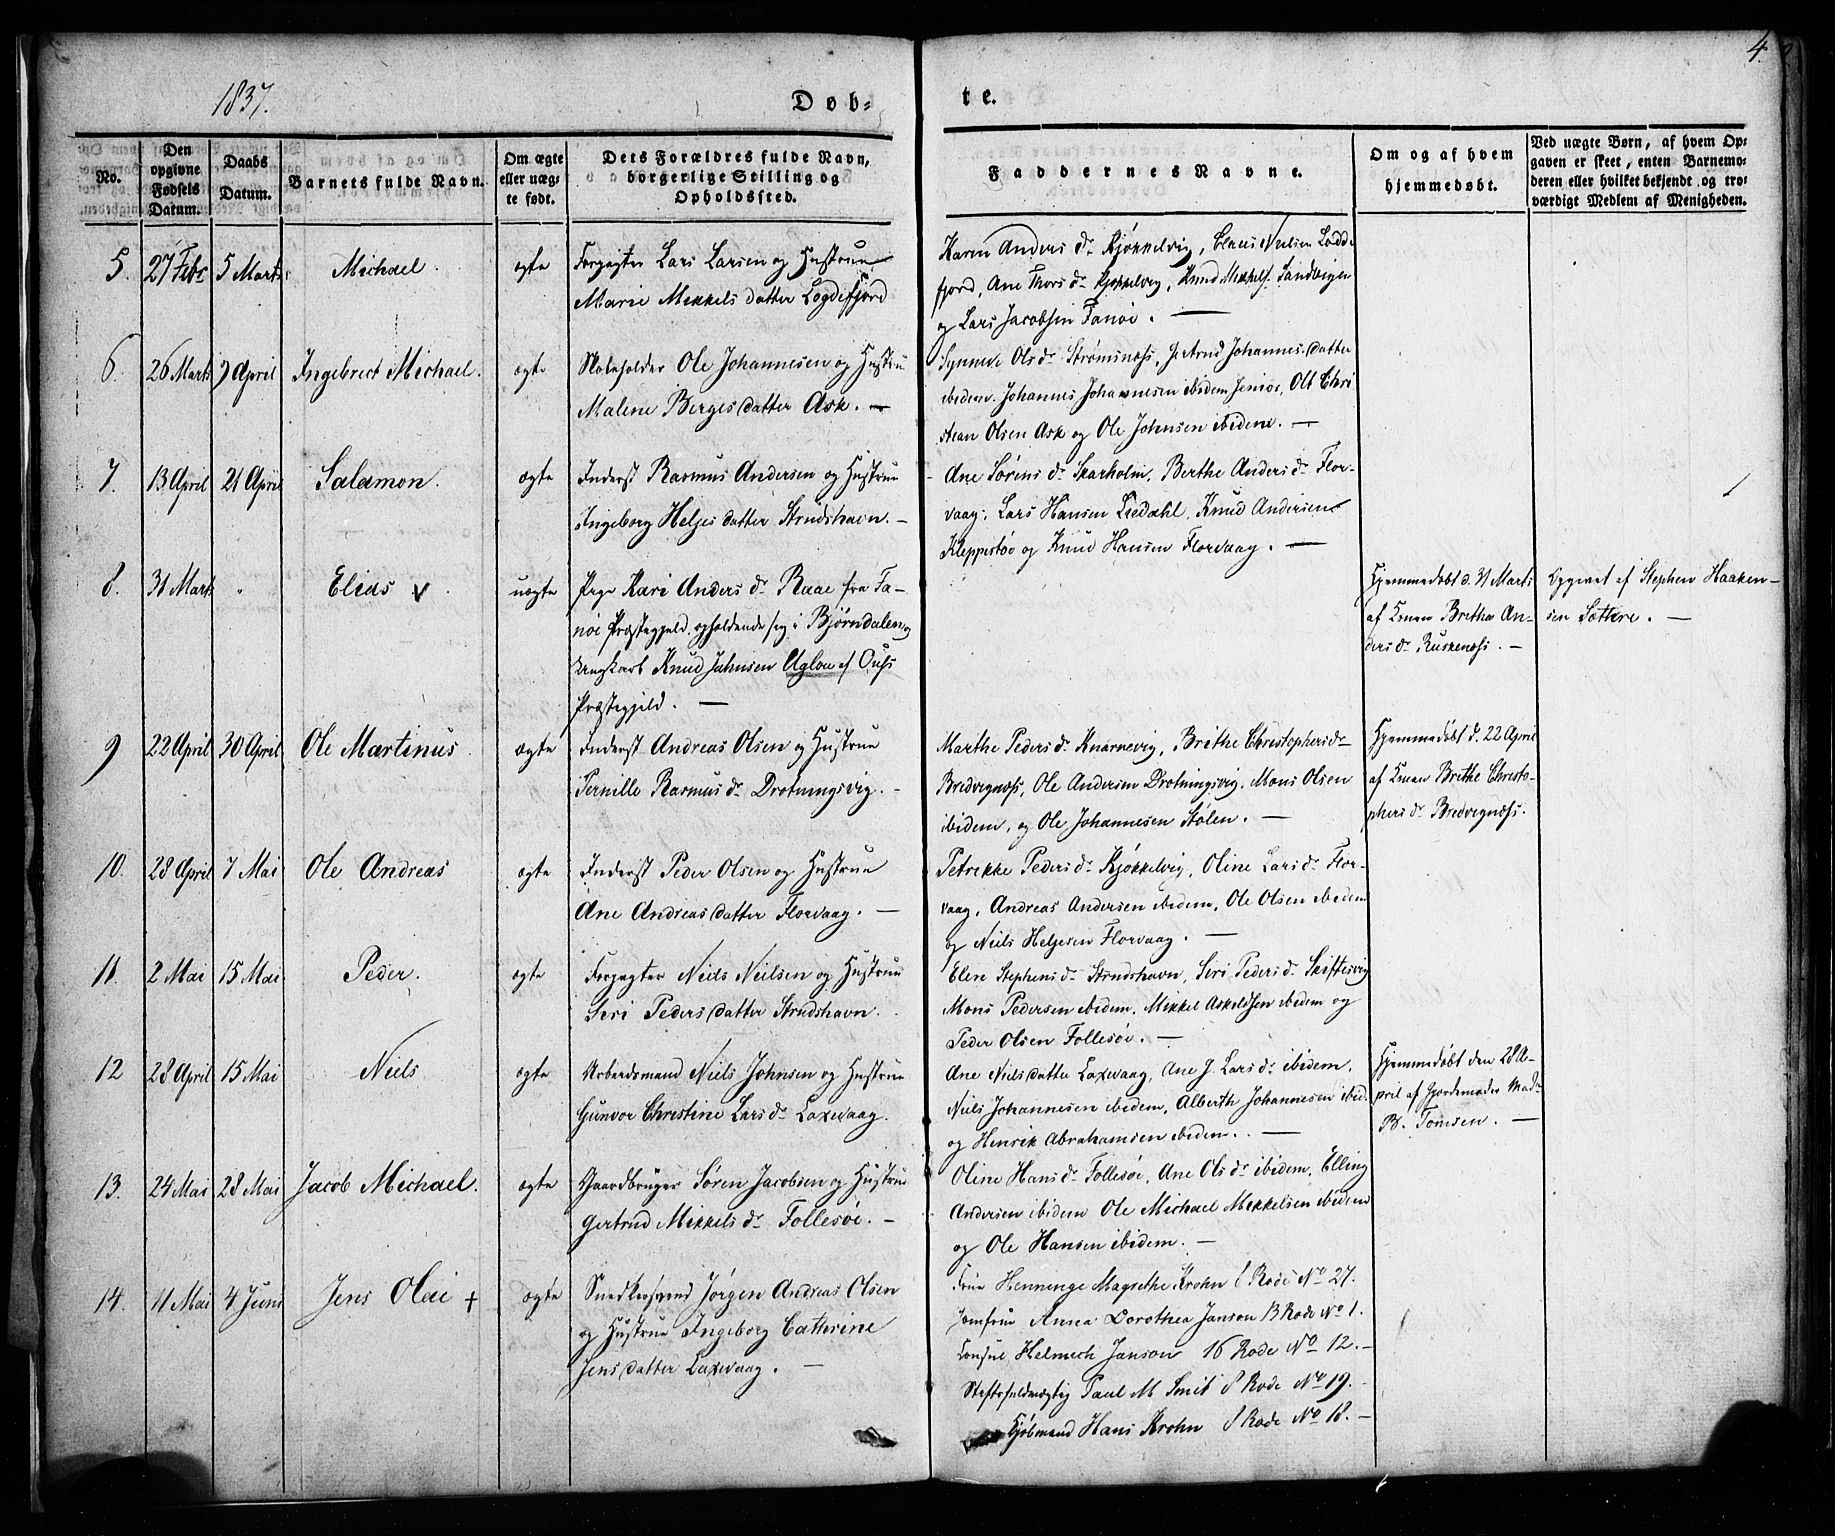 1837.
Døb-
te.
4.
No.
Den opgivne Fødsels Datum.
Daabs Datum.
Barnets fulde Navn.
Om ægte eller uægte født.
Dets Forældres fulde Navn, borgerlige Stilling og Opholdssted.
Faddernes Navne.
Om og af hvem hjemmedøbt.
Ved uægte Børn, af hvem Opgaven er skeet, enten Barnemoderen eller hvilket bekjendt og troværdigt Medlem af Menigheden.
5. 27 Febr 5 Marts Michael. ægte
Forpagter Lars Larsen og Hustrue
Marie Mikkels datter Loddefjord
Karen Anders dr Kjøkkelvig, Claus Nielsen Lodde-
fjord, Ane Thors dr Kjøkkelvig, Knud Mikkels. Sandvigen
og Lars Jacobsen Fanøe. —
6. 26 Marts 9 April Ingebrect Michael. ægte
Ole Johannesen og Hustrue
Malene Berges datter Ask. —
Synneve Ols dr Strømsnæss, Johannes datter
ibidem. Johannes Johannesen ibidem, Ole Chri
stian Olsen Ask og Ole Johnsen ibidem. —
7. 13 April 21 April Salamon. ægte
Inderst Rasmus Andersen og Hustrue
Ingeborg Helges datter Strudshavn. —
Ane Sørens dr Skarholm, Berthe Anders dr Flor-
vaag, Lars Hansen Liedahl, Knud Andersen
Kleppestøe og Knud Hansen Florvaag. —
8. 31 Marts " Elias v. uægte
Pige Kari Anders dr Raae fra Fa-
nøe Præstegjeld opholdende sig i Bjørndalen og
Ungkarl Knud Johnsen Uglou af Ouss
Præstegjeld. —
Hjemmedøbt d. 31 Marts
af Konen Brithe An-
ders dr Ruskenæss. —
Opgivet af Stephen Haaken-
sen Sættere. —
9 22 April 30 April Ole Martinus. ægte
Inderst Andreas Olsen og Hustrue
Pernille Rasmus dr Drotningsvig. —
Marthe Peders dr Knarrevig, Brithe Christophers dr
Bredvignæss, Ole Andersen Drotningsvig, Mons Olsen
ibidem, og Ole Johannesen Stølen. —
Hjemmedøbt d. 22 April
af Konen Brithe Christo-
phers dr Bredvignæss.
10. 28 April 7 Mai Ole Andreas ægte
Inderst Peder Olsen og Hustrue
Ane Andreas datter Florvaag. —
Petrikke Peders dr Kjøkkelvig, Oline Lars dr Flor-
vaag, Andreas Andersen ibidem, Ole Olsen ibidem
og Niels Helgesen Florvaag. —
11. 2 Mai 15 Mai Peder. ægte
Forpagter Niels Nielsen og Hustrue
Siri Peders datter Strudshavn.
Elere Stephens dr Strudshavn, Siri Peders dr Skiftesvig
Mons Pedersen ibidem, Mikkel Askeldsen ibidem og
Peder Olsen Follesøe. —
12 28 April 15 Mai Niels ægte
Arbeidsmand Niels Johnsen og Hustrue
Gunvor Christine Lars dr Laxevaag.
Ane Niels datter Laxevaag, Ane J. Lars dr ibidem.
Niels Johannesen ibidem, Alberth Johannesen ibid.
og Henrik Abrahamsen ibidem. —
Hjemmedøbt den 28 A-
pril af Gjordemoder Mad.
B. Tomsen. —
13. 24 Mai 28 Mai Jacob Michael. ægte
Gaardbruger Søren Jacobsen og Hustrue
Gertrud Mikkels dr Follesøe. —
Oline Hans dr Follesøe, Ane Ols dr ibidem, Elling
Andersen ibidem Ole Michael Mikkelsen ibidem
og Ole Hansen ibidem. —
14. 11 Mai 4 Juni Jens Olai + ægte
Snedkersvend Jørgen Andreas Olsen
og Hustrue Ingeborg Cathrine
Jens datter Laxevaag. —
Frue Henninge Magrethe Krohn 8 Rode No 27.
Jomfrue Anna Dorothea Janson 13 Rode No 1.
Consul Helmech Janson 16 Rode No 12. —
Paul M Smit 8 Rode No 19. —
Kjøbmand Hans Krohn 8 Rode No 18. —